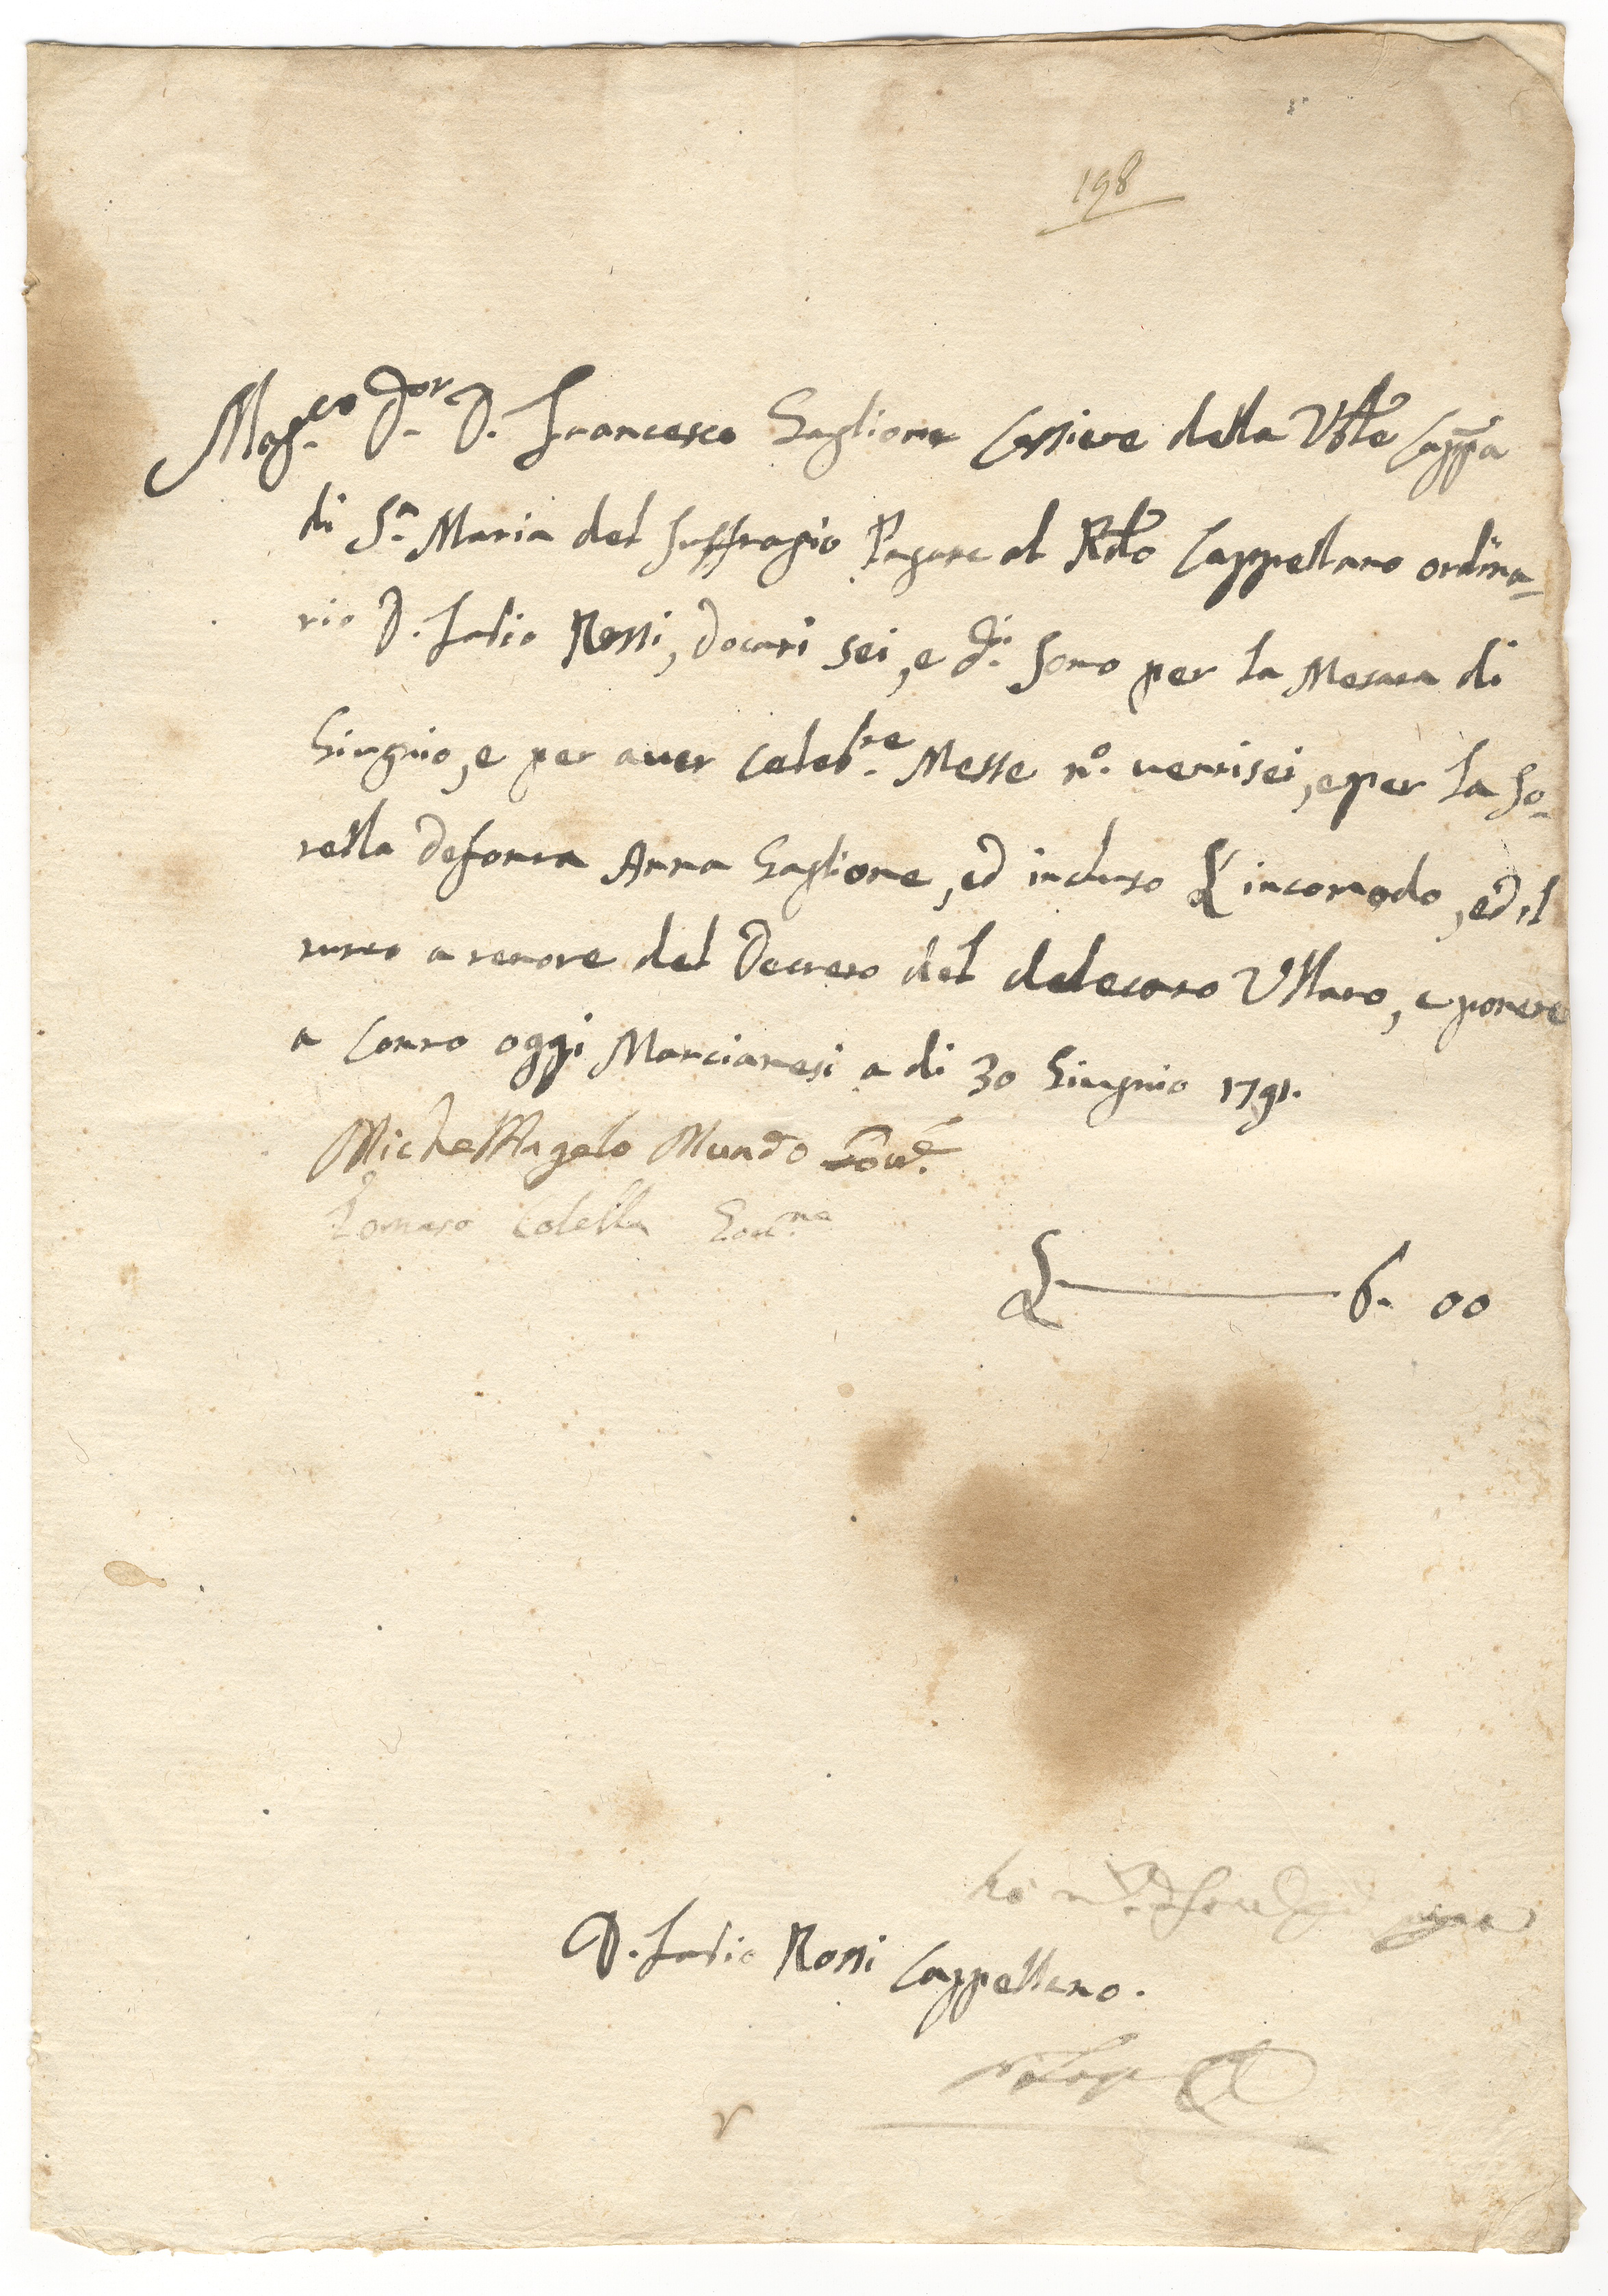 198
Mag.co D.or D. Francesco Gaglione Cassiere della Vble Cappa
di S.a Maria del Suffragio Pagare al Rdo Cappellano ordina=
rio D. Rossi, docati sei, e d.i sono per la Mesata di
Giugnio, e per aver Celeb.re Messe n.o ventisei, e per la so=
rella defonta Anna Gaglione, ed incluso L'incomodo, ed il
tutto a tenore del Decreto del delecato Vllano, e ponete
a Conto oggi Marcianesi a di 30 Giugnio 1791.
Michel'Angelo Mundo
Tomaso Colella
6. 00
D. Rossi Cappellano.